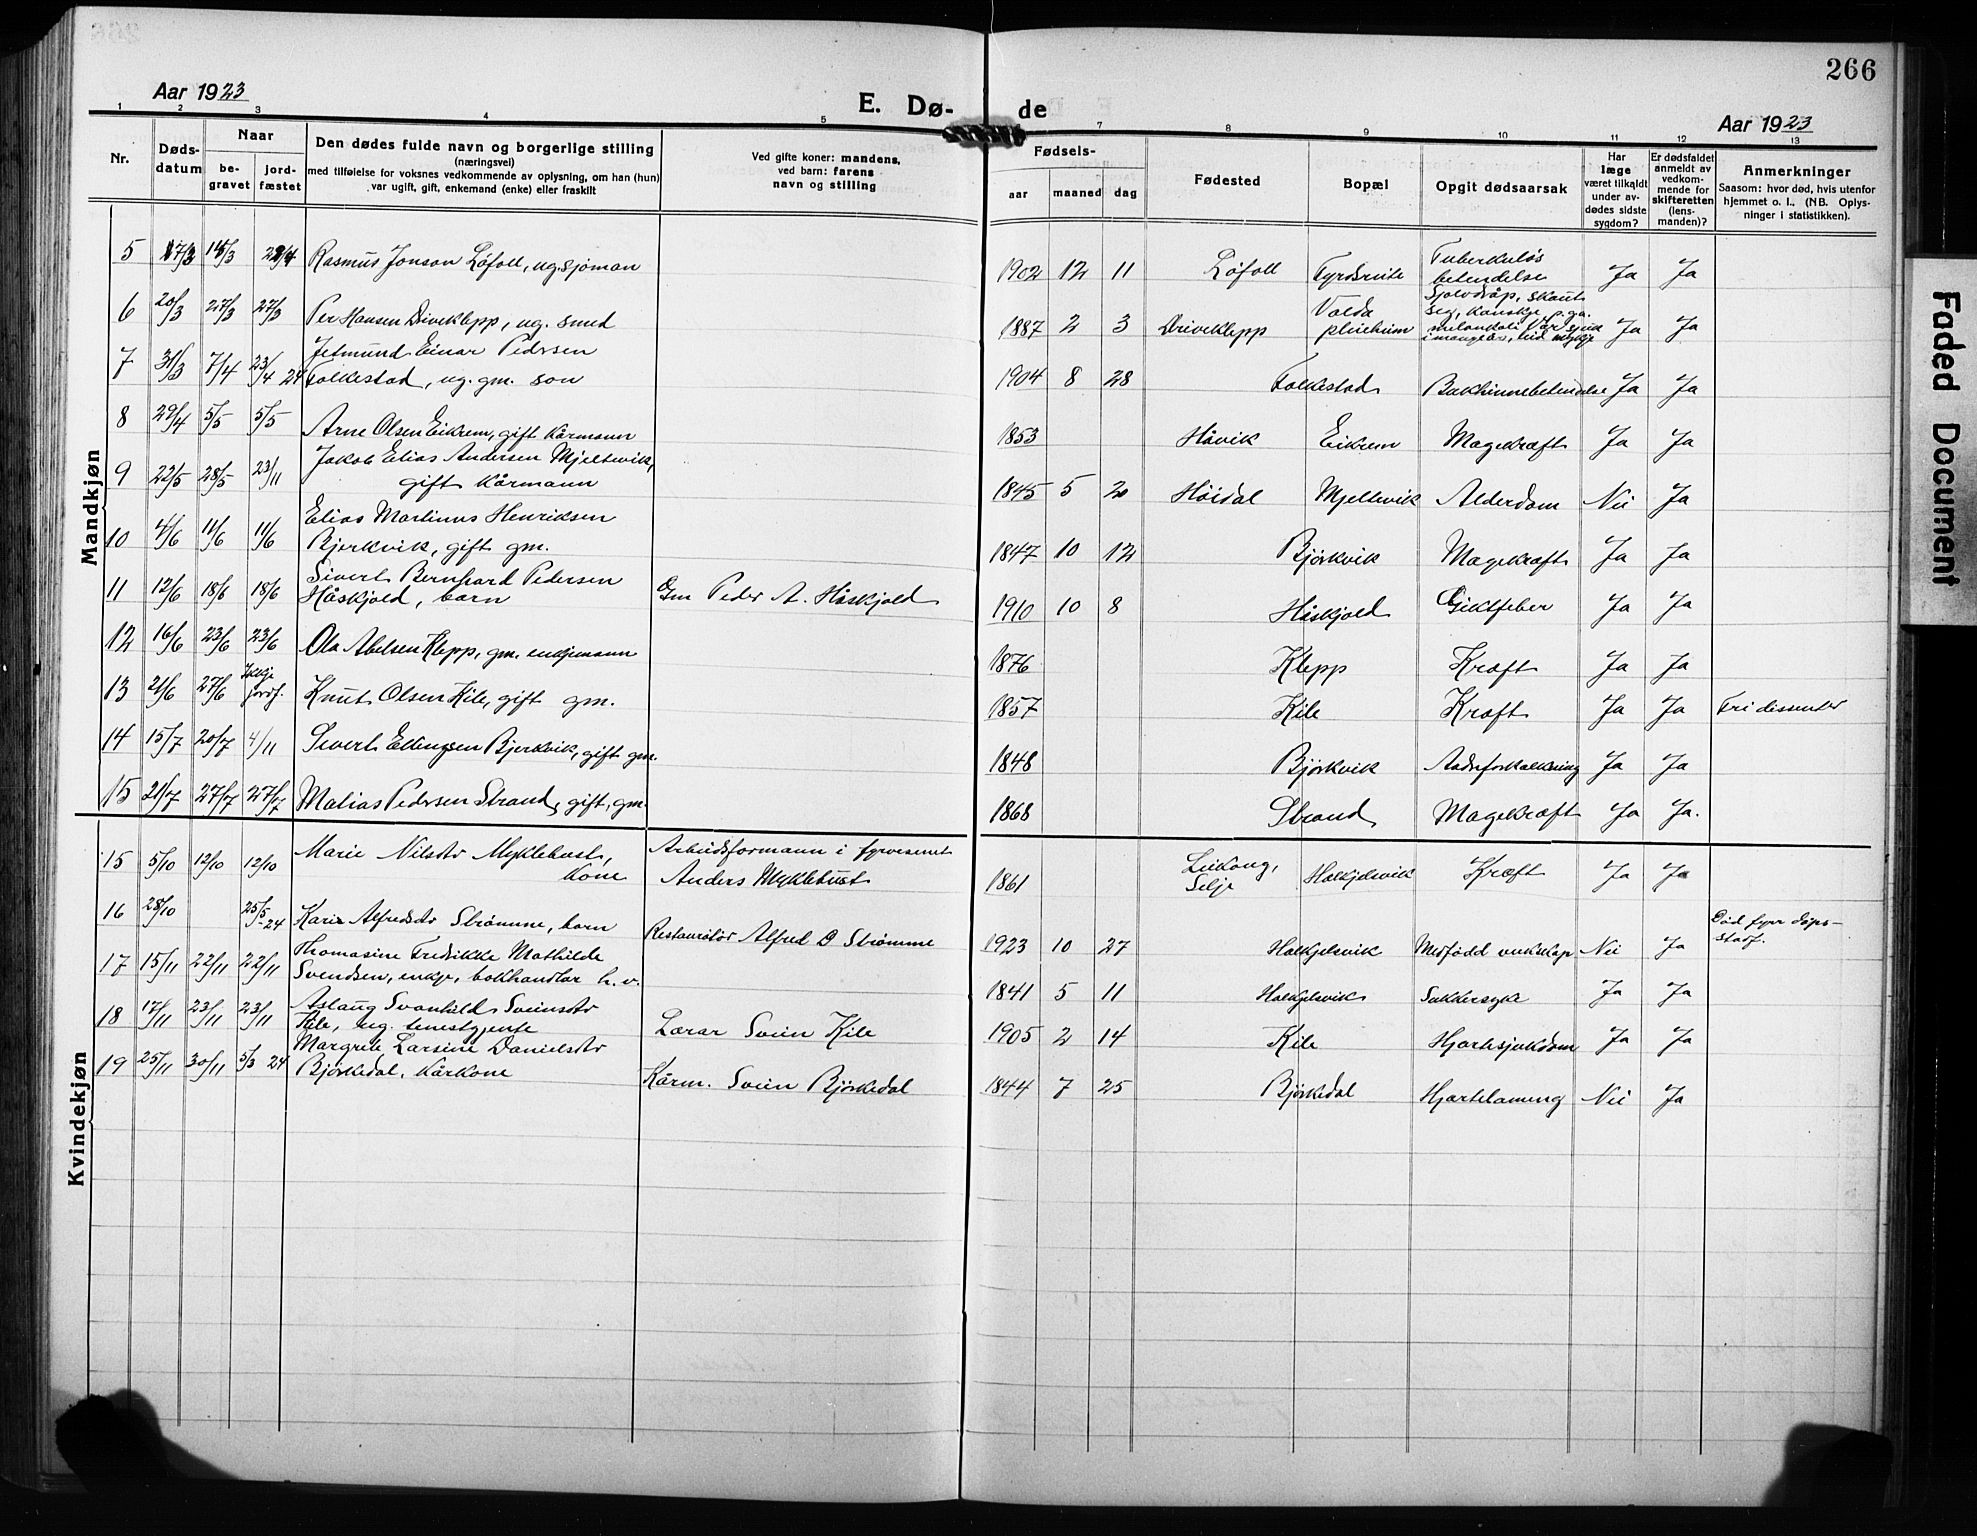 266
Aar 1923
E. Dø-
de
Aar 1923
1 2 3 4 5 7 8 9 10 11 12 13
Nr.
Døds-
datum
Naar
be-
gravet
jord-
fæstet
Den dødes fulde navn og borgerlige stilling
(næringsvei)
med tilføielse for voksnes vedkommende av oplysning, om han (hun)
var ugift, gift, enkemand (enke) eller fraskilt
Ved gifte koner: mandens,
ved barn: farens
navn og stilling
Fødsels-
aar maaned dag
Fødested
Bopæl
Opgit dødsaarsak
Har
læge
været tilkaldt
under av-
dødes sidste
sygdom?
Er dødsfaldet
anmeldt av
vedkom-
mende for
skifteretten
(lens-
manden)?
Anmerkninger
Saasom: hvor død, hvis utenfor
hjemmet o. l., (NB. Oplys-
ninger i statistikken).
Mandkjøn
5 17/3 Rasmus Jonson Løfoll, ug. sjøman 1902 12 11 Løfoll Tuberkuløs
betendelse Ja Ja
6 20/3 27/3 27/3 Per Hansen Driveklepp, ug. smed 1887 2 3 Driveklepp Volda
pleieheim Sjølvdråp, skaut
seg, kanskje p.ga.
melankoli Var sjuk
i mange år, leid mykje Ja Ja
7 31/3 7/4 23/4 24 Jetmund Einar Pedersen
Folkestad, ug. gm. son 1904 8 28 Folkestad Ja Ja
8 29/4 5/5 5/5 Arne Olsen Eikrem, gift kårmann 1853 Håvik Eikrem Magekræft Ja Ja
9 22/5 28/5 23/11 Jakob Elias Andersen Mjeltevik,
gift kårmann 1845 5 20 Høidal Mjeltevik Alderdom Nei Ja
10 4/6 11/6 11/6 Elias Martinus Henriksen
Bjerkvik, gift gm. 1847 10 12 Bjørkvik Magekræft Ja Ja
11 12/6 18/6 18/6 Sivert Bernhard Pedersen
Håskjold, barn Gm Peder A. Håskjold 1910 10 8 Håskjold Giktfeber Ja Ja
12 16/6 23/6 23/6 Ola Abelsen Klepp, gm. enkjemann 1876 Klepp Kræft Ja Ja
13 21/6 27/6 Ikkje
jordf. Knut Olsen Kile, gift gm. 1857 Kile Kræft Ja Ja Fri dissenter
14 15/7 20/7 4/11 Sivert Ellingsen Bjerkvik, gift gm. 1848 Bjørkvik Aadreforkalkning Ja Ja
15 21/7 27/7 27/7 Matias Pedersen Strand, gift, gm. 1868 Strand Magekræft Ja Ja.
Kvindekjøn
15 5/10 12/10 12/10 Marie Nilsdtr Myklebust,
kone Arbeidsformann i fyrvesenet
Anders Myklebust 1861 Leikong,
Selje Halkjelsvik Kræft Ja Ja
16 28/10 25/5-24 Kari Alfredsdtr Strømme, barn Restauratør Alfred D Strømme 1923 10 27 Halkjelsvik Medfødd veikskap Nei Ja Død fyrr dåps-
stadf.
17 15/11 22/11 22/11 Thomasine Fredrikke Mathilde
Svendsen, enkje, bokhandlar h. v. 1841 5 11 Halkjelsvik Sukkersyke Ja Ja
18 17/11 23/11 23/11 Aslaug Svanhild Sveinsdtr
Kile, ug. tenestgjente Lærar Svein Kile 1905 2 14 Kile Hjartesjukdom Ja Ja
19 25/11 30/11 5/3 24 Margrete Larsine Danielsdtr
Bjørkedal, kårkone Kårm. Svein Bjørkedal 1844 7 25 Bjørkedal Hjartelaming Nei Ja
Faded Document